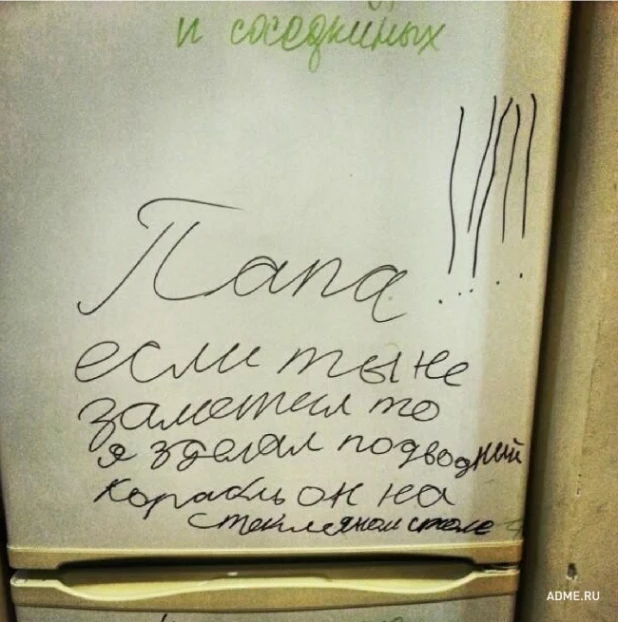 и соседкиных
Папа!!!!!
если ты не
заметил то
я зделал подводний
корабль он на
стекляном столе
ADME.RU